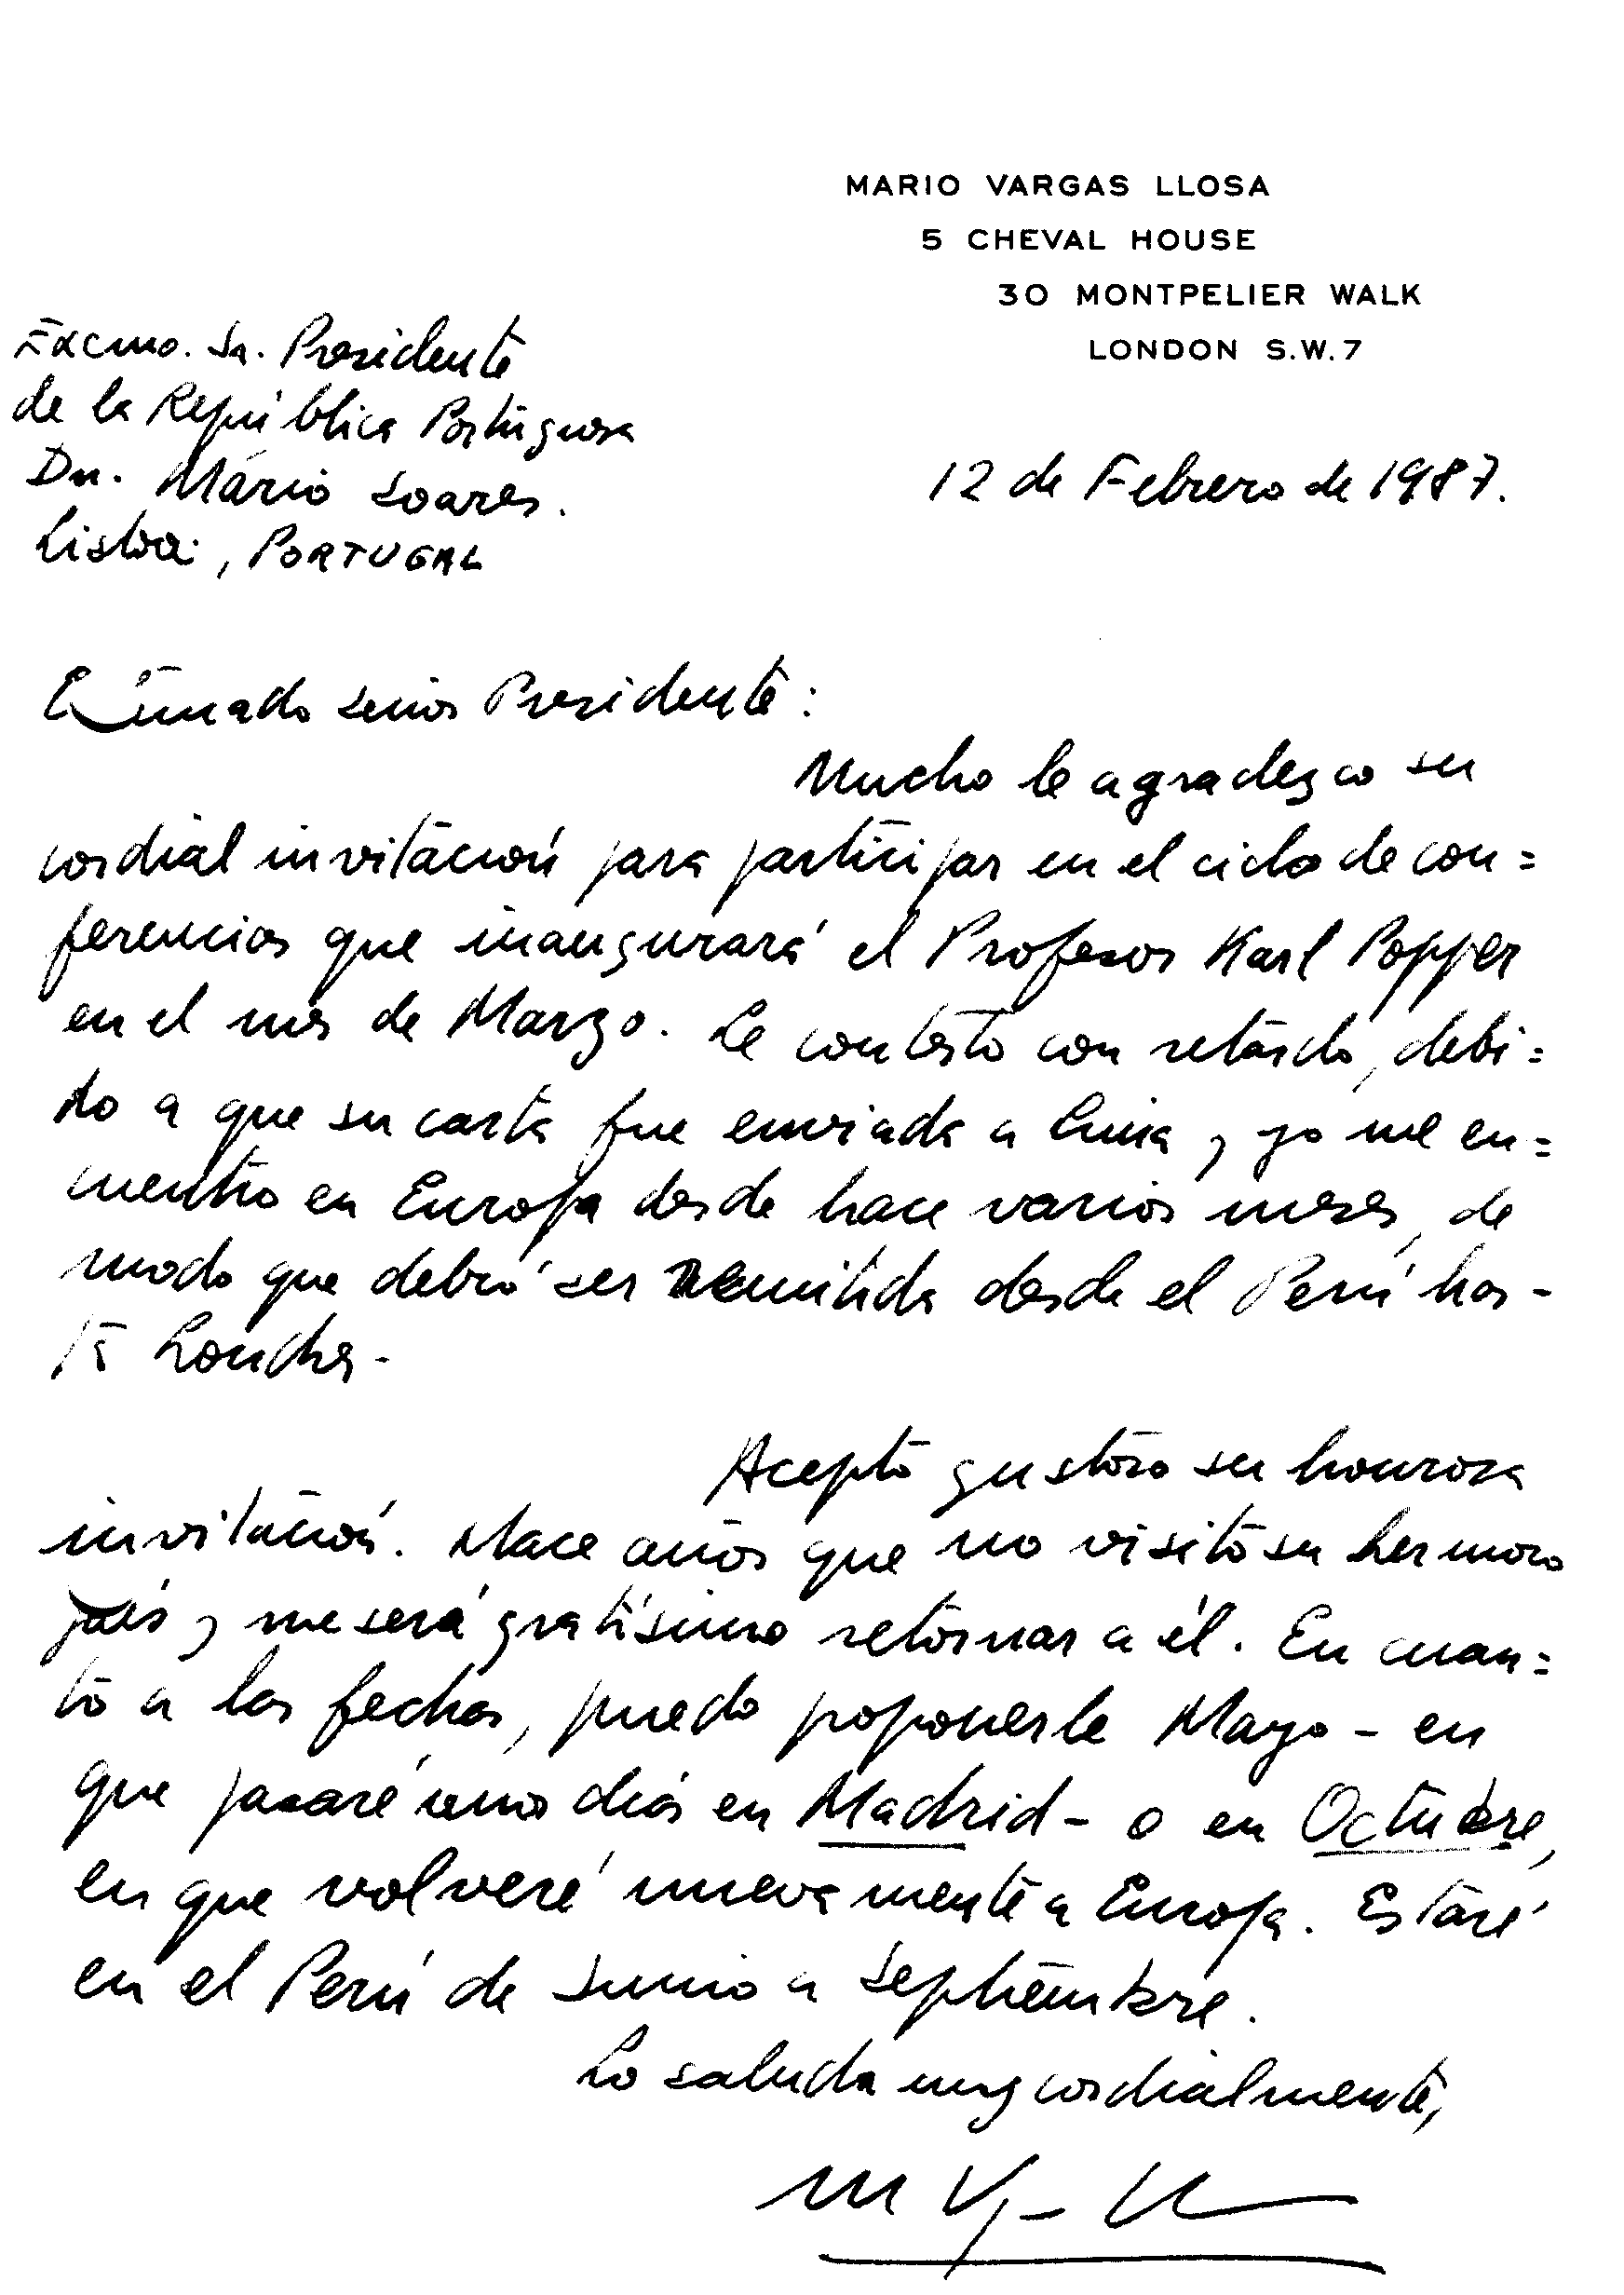 MARIO VARGAS LLOSA
5 CHEVAL HOUSE
30 MONTPELIER WALK
LONDON S.W.7
Excmo. Sr. Presidente
de la República Portuguesa
Dn. Mário Soares.
Lisboa, PORTUGAL
12 de Febrero de 1987.
Estimado señor Presidente:
Mucho le agradezco su
cordial invitación para participar en el ciclo de con=
ferencias que inaugurará el Profesor Karl Popper
en el mes de Marzo. Le contesto con retardo, debi=
do a que su carta fue enviada a Lima y yo me en=
cuentro en Europa desde hace varios meses, de
modo que debió ser remitida desde el Perú has-
ta Londres.
Acepto gustoso su honrosa
invitación. Hace años que no visito su hermoso
país y me será gratísimo retornar a él. En cuan=
to a las fechas, puedo poponerle Mayo - en
que pasaré unos días en Madrid - o en Octubre,
en que volveré nuevamente a Europa. Estaré
en el Perú de Junio a Septiembre.
Lo saluda muy cordialmente,